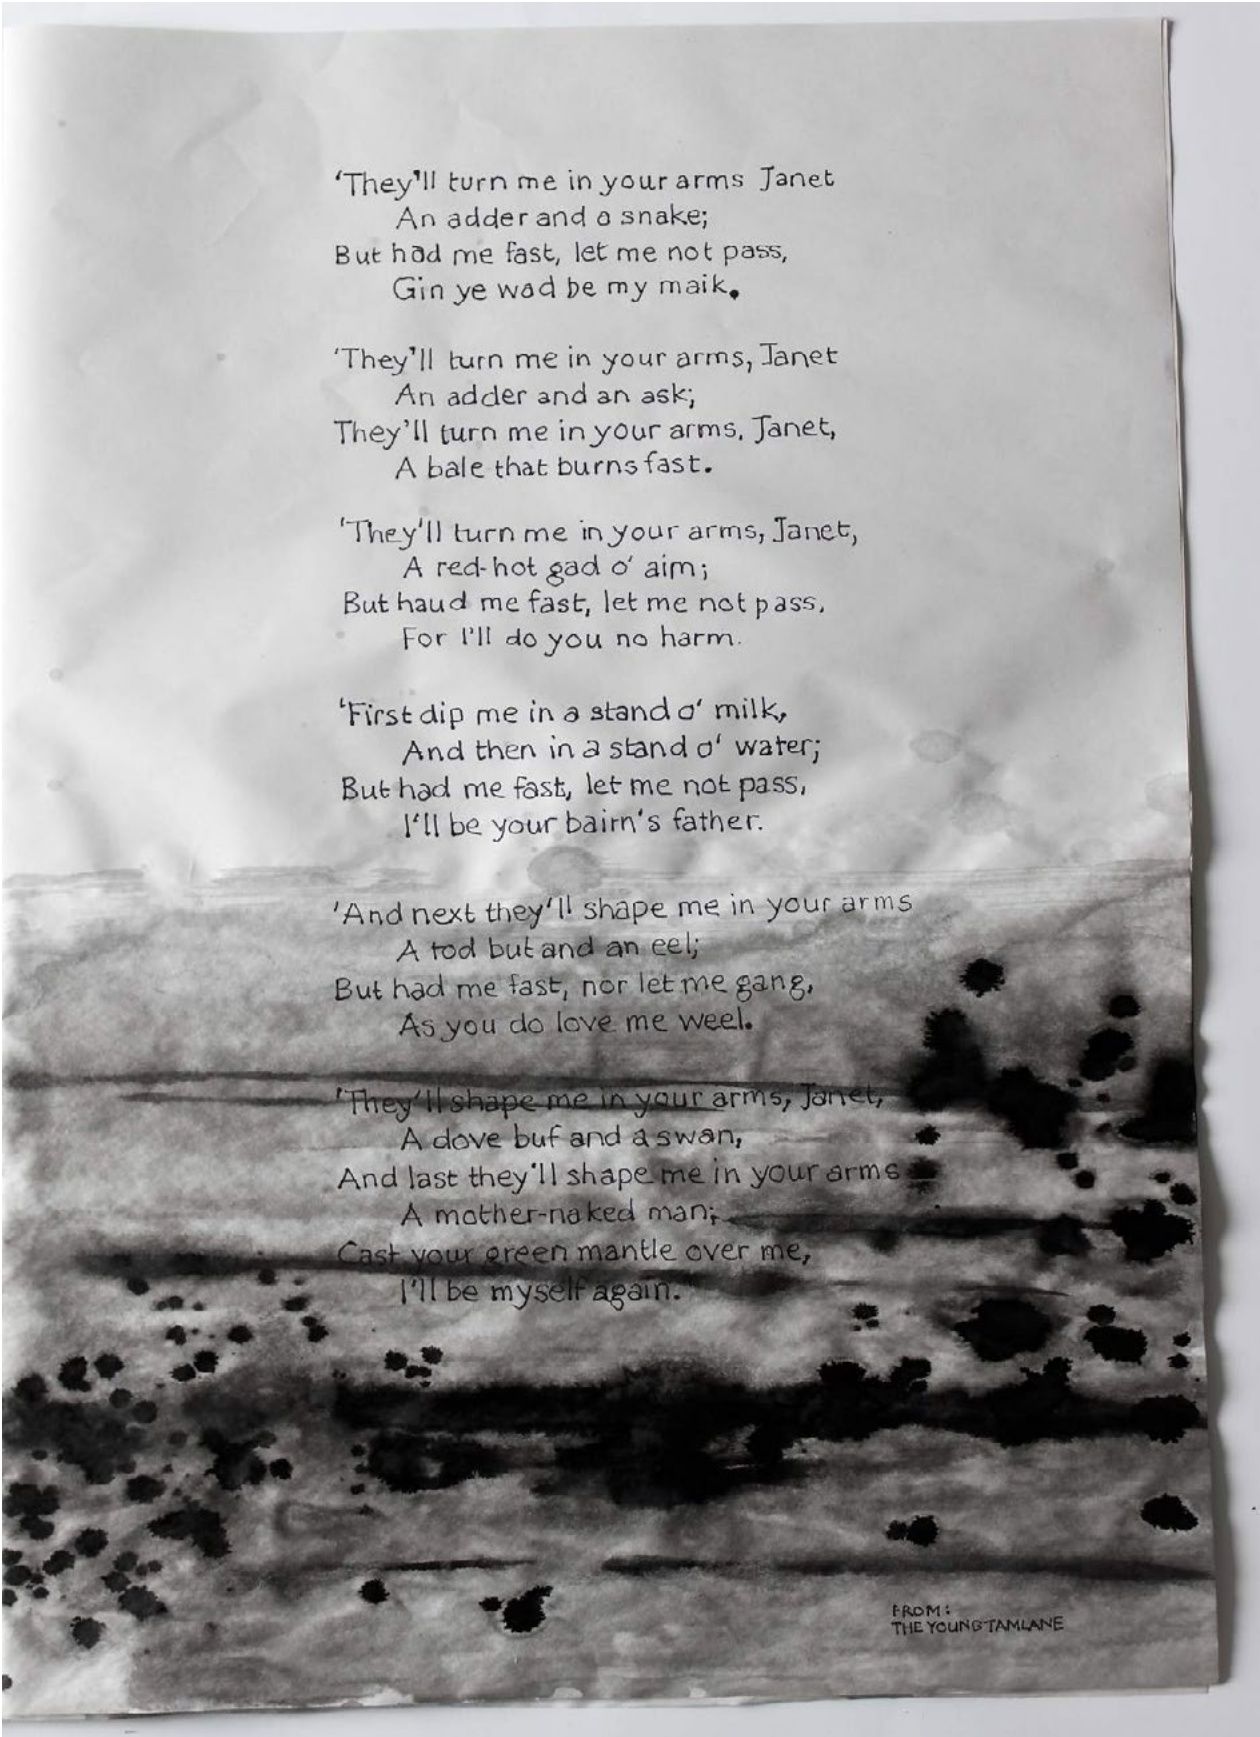 'They'll turn me in your arms Janet
An adder and a snake;
But had me fast, let me not pass,
Gin ye wad be my maik.
'They'll turn me in your arms, Janet
An adder and an ask;
They'll turn me in your arms, Janet,
A bale that burns fast.
'They'll turn me in your arms, Janet,
A red-hot gad o' aim;
But haud me fast, let me not pass,
For I'll do you no harm.
'First dip me in a stand o' milk,
And then in a stand o' water;
But had me fast, let me not pass,
I'll be your bairn's father.
'And next they'll shape me in your arms
A tod but and an eel;
But had me fast, nor let me gang,
As you do love me weel.
'They'll shape me in your arms, Janet,
A dove buf and a swan,
And last they'll shape me in your arms
A mother-naked man;
Cast your green mantle over me,
I'll be myself again.
FROM:
THE YOUNG TAMLANE